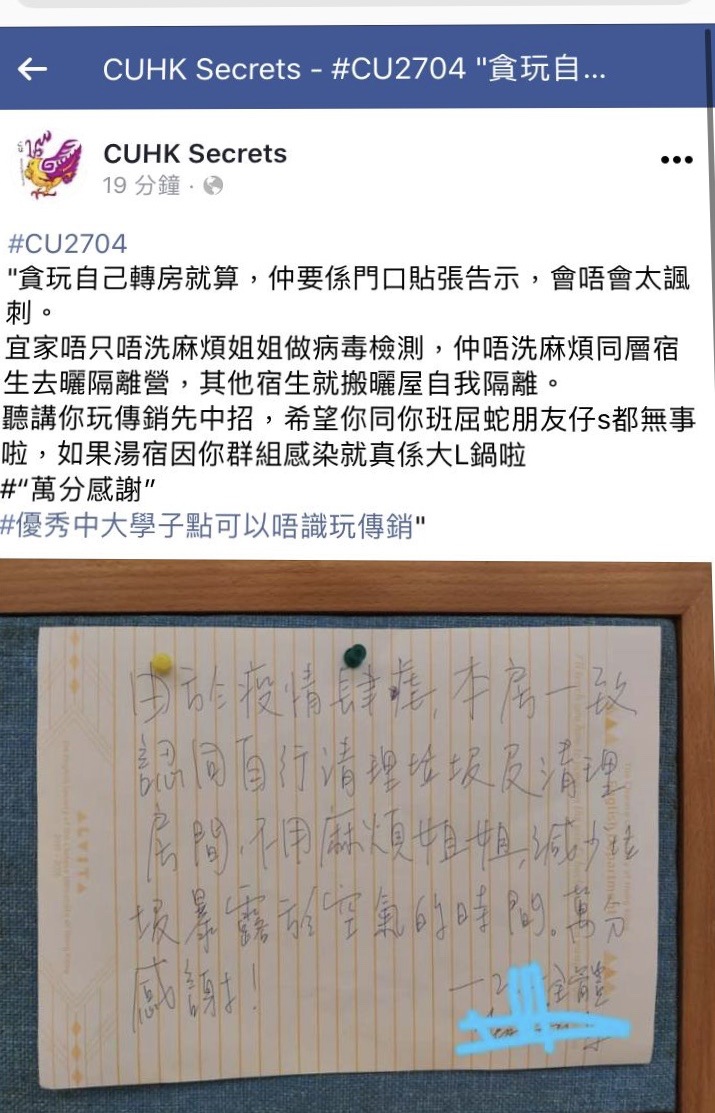 CUHK Secrets - #CU2704 "貪玩自...
CUHK Secrets
19 分鐘 ·
#CU2704
"貪玩自己轉房就算，仲要係門口貼張告示，會唔會太諷
刺。
宜家唔只唔洗麻煩姐姐做病毒檢測，仲唔洗麻煩同層宿
生去曬隔離營，其他宿生就搬曬屋自我隔離。
聽講你玩傳銷先中招，希望你同你班屈蛇朋友仔s都無事
啦，如果湯宿因你群組感染就真係大L鍋啦
#“萬分感謝”
#優秀中大學子點可以唔識玩傳銷"
由於疫情肆虐，本房一致
認同自行清理垃圾及清理
房間，不用麻煩姐姐，減少垃
圾暴露於空氣的時間。萬分
感謝！
全體
ALVITA